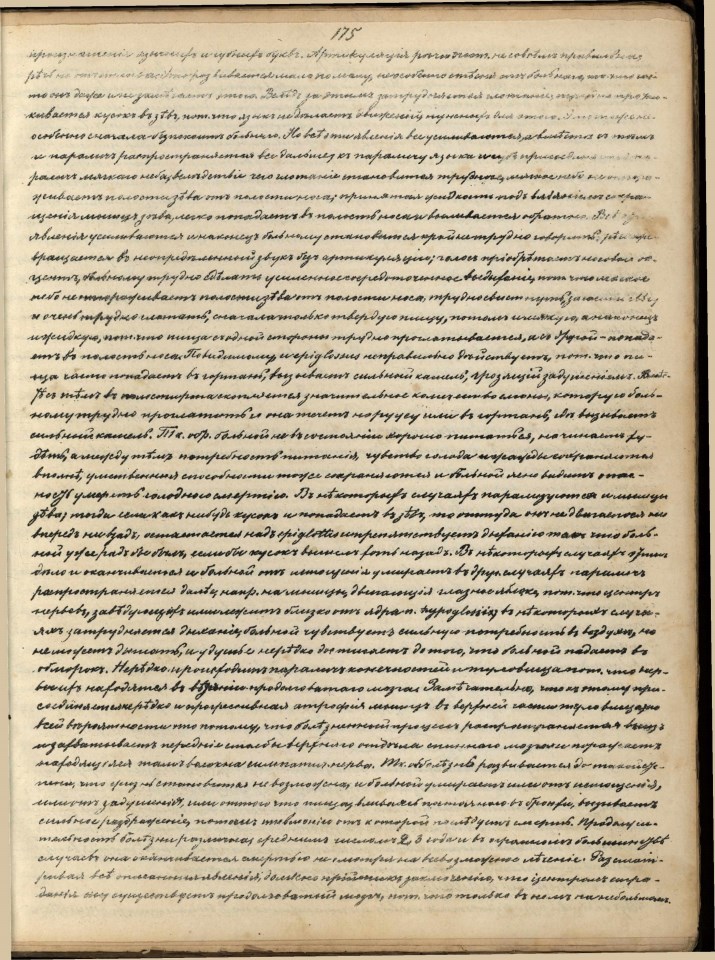 175
произношенiе язычныхъ и губныхъ буквъ. Артикуляцiя рѣчи не совсѣмъ правильна;
рѣчи развивается мало по малу, незамѣтно для больного, что
то онъ даже и не замѣчаетъ этого. Вслѣдъ за этимъ затрудняется глотанiе,
кивается кусокъ въ зѣвъ, пот. что языкъ не дѣлаетъ движенiй нужныхъ для этого.
особенно сначала безпокоитъ больного. Но всѣ эти явленiя все усиливаются, а вмѣстѣ съ тѣмъ
и параличъ распространяется все далѣе; къ параличу языка и губъ присоединяется па-
раличъ мягкаго неба, вслѣдствiе чего глотанiе становится труднѣе, мягкое небо не отгора-
живаетъ полости зѣва отъ полости носа; принятая жидкость подъ влiянiемъ сокра-
щенiя мышцъ зѣва, легко попадаетъ въ полость носа и выливается обратно. Всѣ эти
явленiя усиливаются и наконецъ больному становится крайне трудно говорить: рѣчь пре-
вращается въ неопредѣленный звукъ безъ артикуляцiи; голосъ прiобрѣтаетъ носовой ак-
центъ, больному трудно сдѣлать усиленное сосредоточенное выдыханiе, пот. что мягкое
небо не отгораживаетъ полости зѣва отъ полости носа, трудно свистнуть, загасить свѣчу
и очень трудно глотать, сначала только твердую пищу, потомъ и мягкую, а наконецъ
и жидкую, пот. что пища съ одной стороны трудно проглатывается, а съ другой – попада-
етъ въ полость носа. Повидимому, и epiglottis неправильно дѣйствуетъ, пот. что пи-
ща часто попадаетъ въ гортань, вызываетъ сильный кашель, грозящiй задушенiемъ. Вмѣс-
тѣ съ тѣмъ въ полости рта скопляется значительное количество слюны, которую боль-
ному трудно проглатить и она течетъ наружу или въ гортань, гдѣ вызываетъ
сильный кашель. Так. обр. больной не въ состоянiи хорошо питаться, начинаетъ ху-
дѣть, а между тѣмъ потребность питанiя, чувство голода и жажды сохраняются
вполнѣ, умственныя способности тоже сохраняются и больной ясно видитъ опас-
ность умереть голодной смертiю. Въ нѣкоторыхъ случаяхъ парализуются и мышцы
зѣва; тогда если какъ нибудь кусокъ и попадаетъ въ зѣвъ, то оттуда онъ не двигается ни
впередъ ни взадъ, останавливается надъ epiglottis и препятствуетъ дыханiю такъ что боль-
ной ужъ радъ бы былъ, если бы кусокъ вышелъ хоть назадъ. Въ нѣкоторыхъ случаяхъ этимъ
дѣло и оканчивается и больной отъ истощенiя умираетъ; въ друг. случаяхъ параличъ
распространяется далѣе, напр. на мышцы, двигающiя глазное яблоко, пот. что центръ
нервовъ, завѣдующихъ ими лежитъ близко отъ ядра n. hypoglossi; въ нѣкоторыхъ случа-
яхъ затрудняется дыханiе; больной чувствуетъ сильную потребность въ воздухѣ, но
не можетъ дышать, и удушье нерѣдко достигаетъ до того, что больной падаетъ въ
обморокъ. Нерѣдко происходитъ параличъ конечностей и туловища пот. что нер-
вы ихъ находятся въ вѣденiи продолговатаго мозга. Замѣчательно, что къ этому при-
соединяется нерѣдко и прогрессивная атрофiя мышцъ въ верхней части туловища, по
всей вѣроятности что потому, что болѣзненный процессъ распространяется внизъ
и захватываетъ переднiе столбы верхняго отдѣла спиннаго мозга и поражаетъ
находящiеся тамъ волокна симпатич. нерва. Так. обр. болѣзнь развивается до такой сте-
пени, что жизнь становится не возможна, и больной умираетъ или отъ истощенiя,
или отъ задушенiя, или оттого что пища, вливаясь постоянно въ бронхи, вызываетъ
сильное раздраженiе, потомъ пневмонiю отъ которой послѣдуетъ смерть. Продолжи-
тельность болѣзни различна, среднимъ числомъ 2, 3 года и въ огромномъ большинствѣ
случаевъ она оканчивается смертью не смотря на всевозможное лѣченiе. Разсмат-
ривая всѣ описанныя явленiя, должно прiйти къ заключенiю, что центромъ стра-
данiя существуетъ продолговатый мозгъ, пот. что только въ немъ на небольшомъ